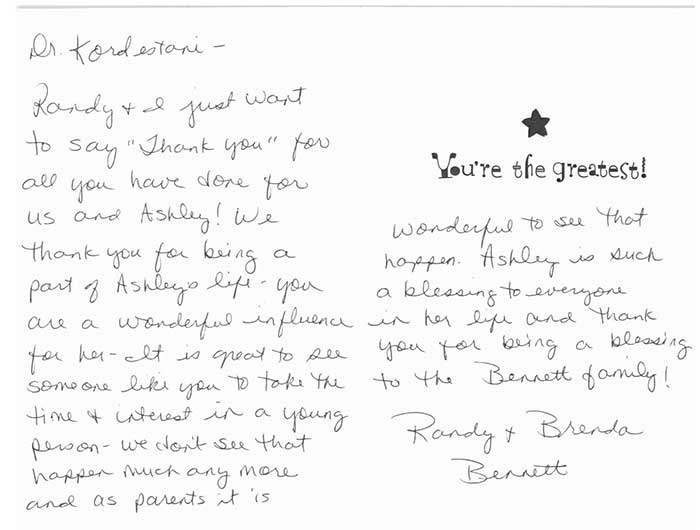 Dr. Kordestani –
Randy & I just want
to say "Thank you" for
all you have done for
us and Ashley! We
thank you for being a
part of Ashley's life - you
are a wonderful influence
for her - It is great to see
someone like you to take the
time & interest in a young
person - we don't see that
happen much any more
and as parents it is
You're the greatest!
wonderful to see that
happen. Ashley is such
a blessing to everyone
in her life and thank
you for being a blessing
to the Bennett family!
Randy & Brenda
Bennett